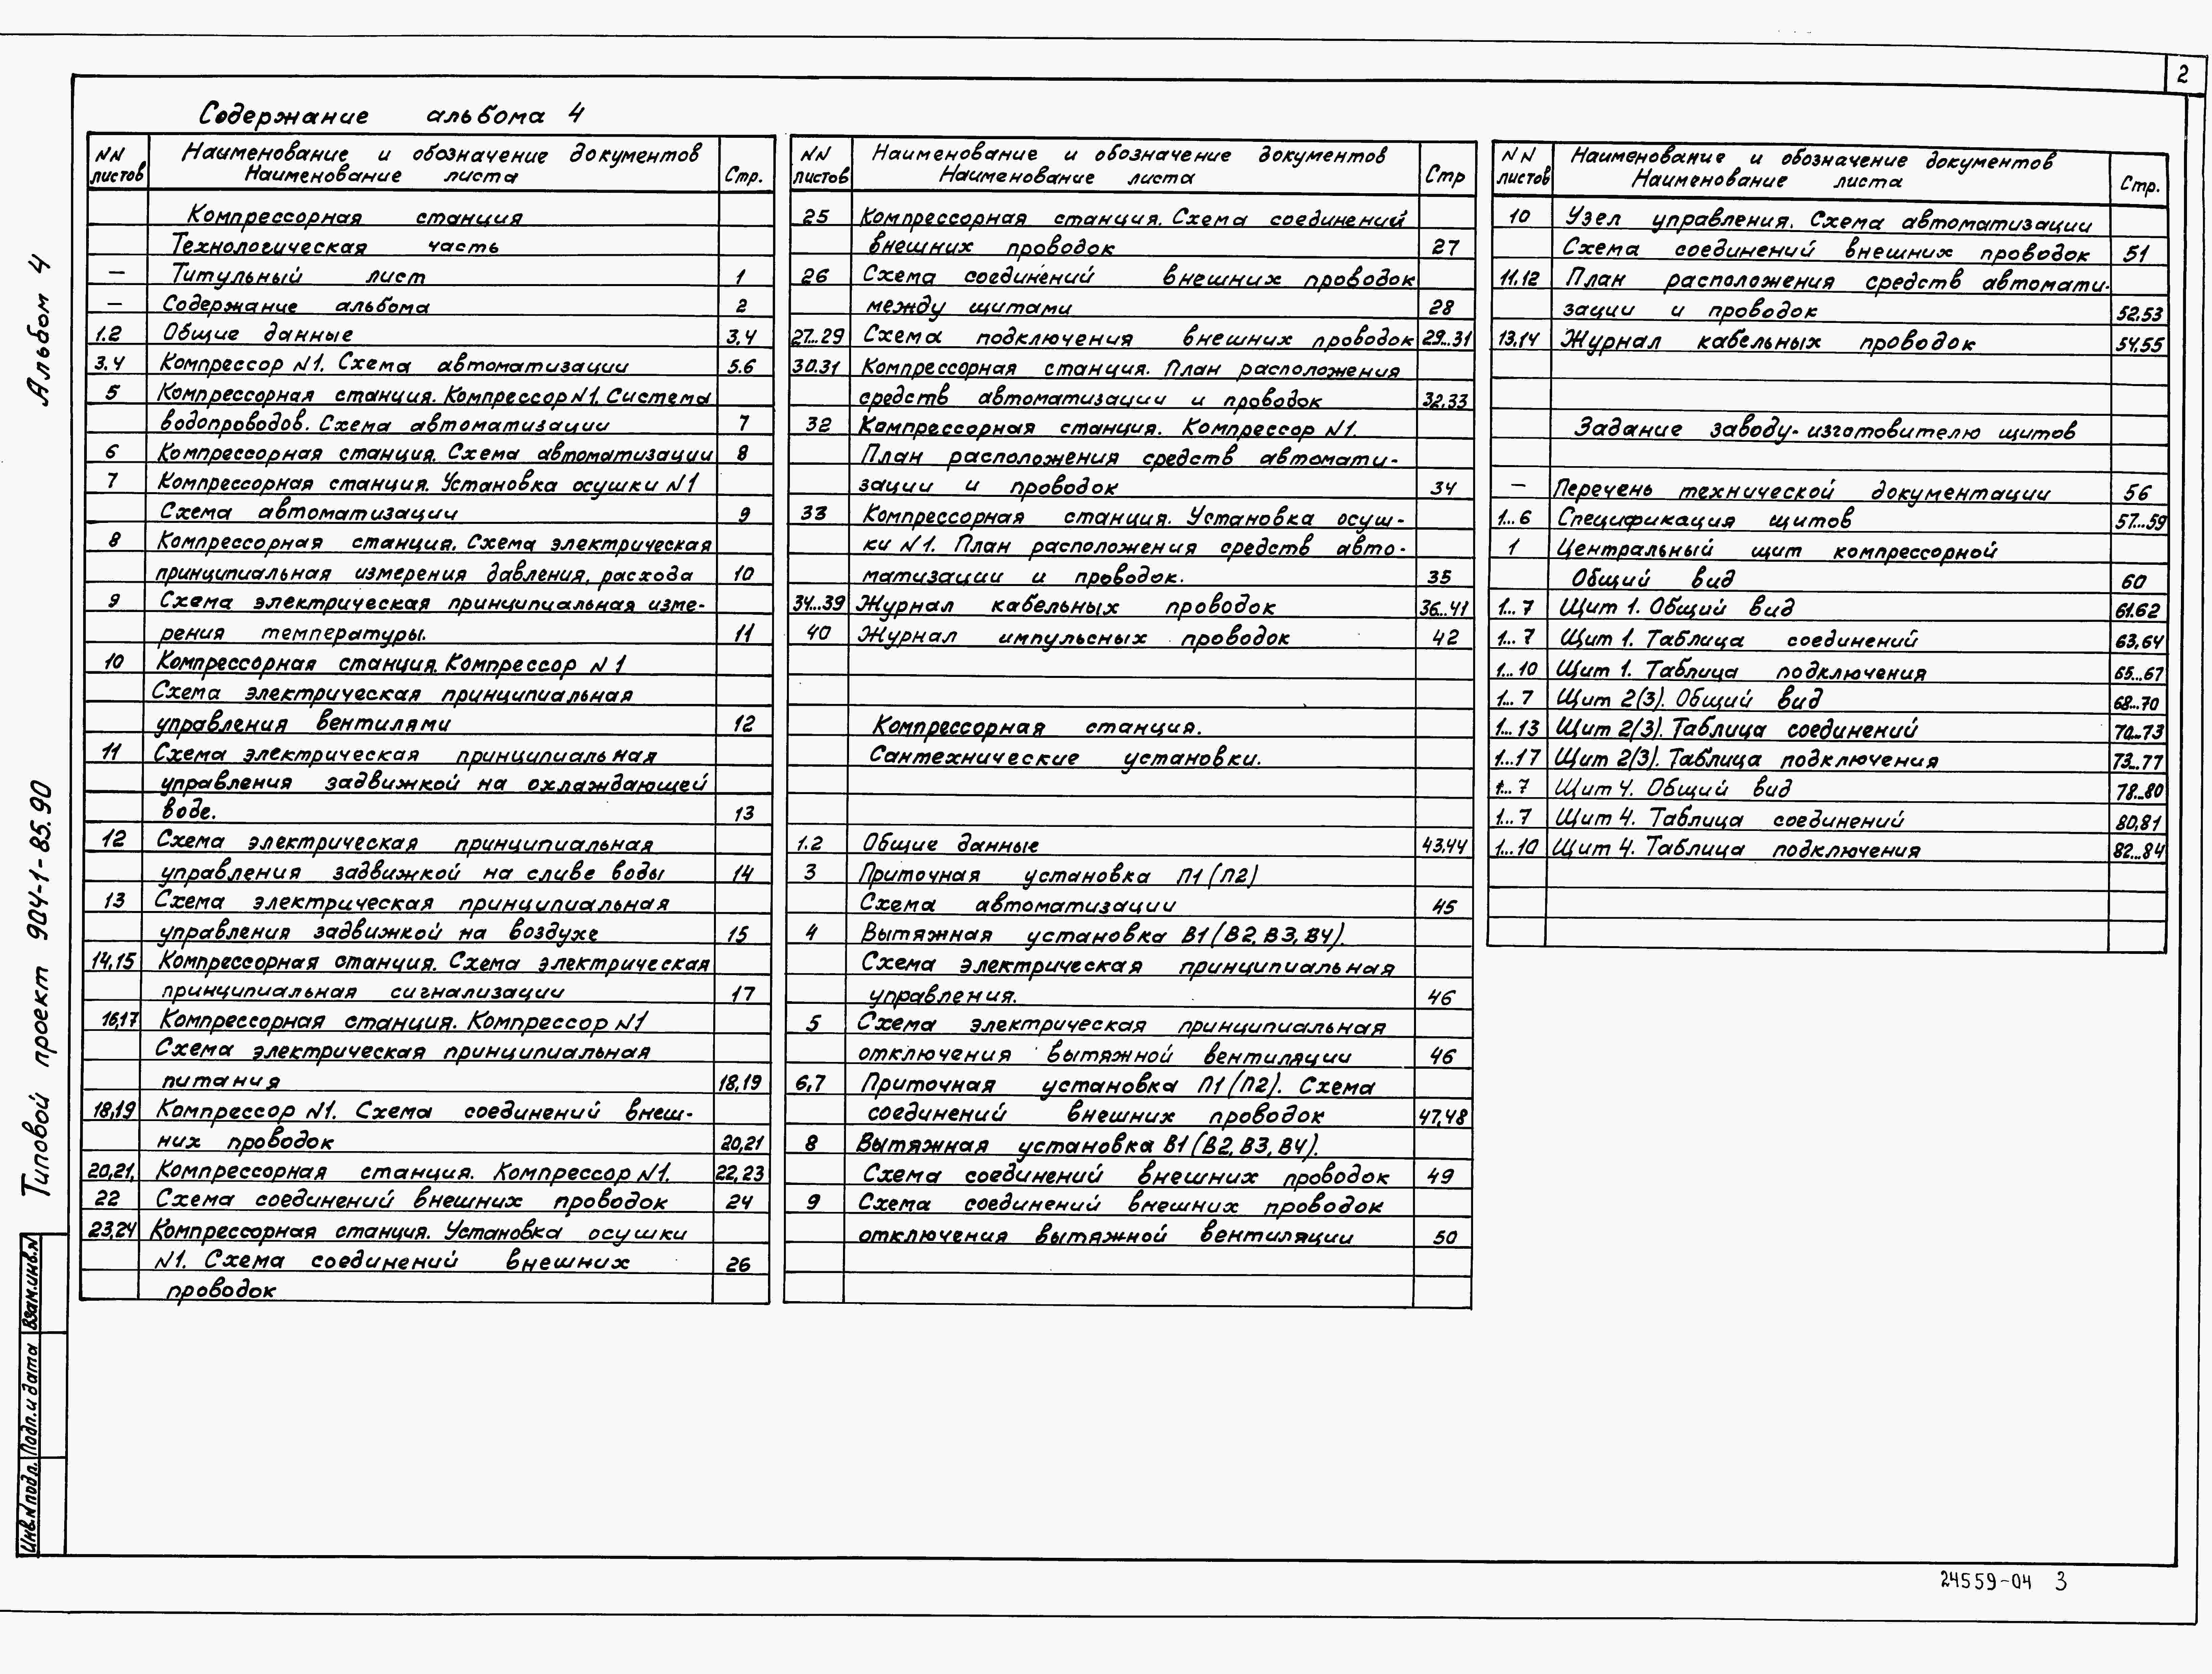 2
Содержание альбома 4
NN листов | Наименование и обозначение документов Наименование листа | Стр.
Компрессорная станция
Технологическая часть
— Титульный лист 1
— Содержание альбома 2
1.2 Общие данные 3,4
3.4 Компрессор N1. Схема автоматизации 5.6
5 Компрессорная станция. Компрессор N1. Система
водопроводов. Схема автоматизации 7
6 Компрессорная станция. Схема автоматизации 8
7 Компрессорная станция. Установка осушки N1
Схема автоматизации 9
8 Компрессорная станция. Схема электрическая
принципиальная измерения давления, расхода 10
9 Схема электрическая принципиальная изме-
рения температуры. 11
10 Компрессорная станция. Компрессор N1
Схема электрическая принципиальная
управления вентилями 12
11 Схема электрическая принципиальная
управления задвижкой на охлаждающей
воде. 13
12 Схема электрическая принципиальная
управления задвижкой на сливе воды 14
13 Схема электрическая принципиальная
управления задвижкой на воздухе 15
14,15 Компрессорная станция. Схема электрическая
принципиальная сигнализации 17
16,17 Компрессорная станция. Компрессор N1
Схема электрическая принципиальная
питания 18,19
18,19 Компрессор N1. Схема соединений внеш-
них проводок 20,21
20,21, Компрессорная станция. Компрессор N1. 22,23
22 Схема соединений внешних проводок 24
23,24 Компрессорная станция. Установка осушки
N1. Схема соединений внешних 26
проводок
NN листов | Наименование и обозначение документов Наименование листа | Стр
25 Компрессорная станция. Схема соединений
внешних проводок 27
26 Схема соединений внешних проводок
между щитами 28
27...29 Схема подключения внешних проводок 29...31
30.31 Компрессорная станция. План расположения
средств автоматизации и проводок 32,33
32 Компрессорная станция. Компрессор N1.
План расположения средств автомати-
зации и проводок 34
33 Компрессорная станция. Установка осуш-
ки N1. План расположения средств авто-
матизации и проводок. 35
34...39 Журнал кабельных проводок 36...41
40 Журнал импульсных проводок 42
Компрессорная станция.
Сантехнические установки.
1.2 Общие данные 43,44
3 Приточная установка П1 (П2)
Схема автоматизации 45
4 Вытяжная установка В1 (В2, В3, В4).
Схема электрическая принципиальная
управления. 46
5 Схема электрическая принципиальная
отключения вытяжной вентиляции 46
6,7 Приточная установка П1 (П2). Схема
соединений внешних проводок 47,48
8 Вытяжная установка В1 (В2, В3, В4).
Схема соединений внешних проводок 49
9 Схема соединений внешних проводок
отключения вытяжной вентиляции 50
NN листов | Наименование и обозначение документов Наименование листа | Стр.
10 Узел управления. Схема автоматизации
Схема соединений внешних проводок 51
11.12 План расположения средств автомати-
зации и проводок 52.53
13,14 Журнал кабельных проводок 54,55
Задание заводу-изготовителю щитов
— Перечень технической документации 56
1...6 Спецификация щитов 57...59
1 Центральный щит компрессорной
Общий вид 60
1...7 Щит 1. Общий вид 61.62
1...7 Щит 1. Таблица соединений 63,64
1...10 Щит 1. Таблица подключения 65...67
1...7 Щит 2(3). Общий вид 68...70
1...13 Щит 2(3). Таблица соединений 70...73
1...17 Щит 2(3). Таблица подключения 73...77
1...7 Щит 4. Общий вид 78...80
1...7 Щит 4. Таблица соединений 80,81
1...10 Щит 4. Таблица подключения 82...84
Альбом 4
Типовой проект 904-1-85.90
Взам.инв.N
Подп.и дата
Инв.N подл.
24559-04 3